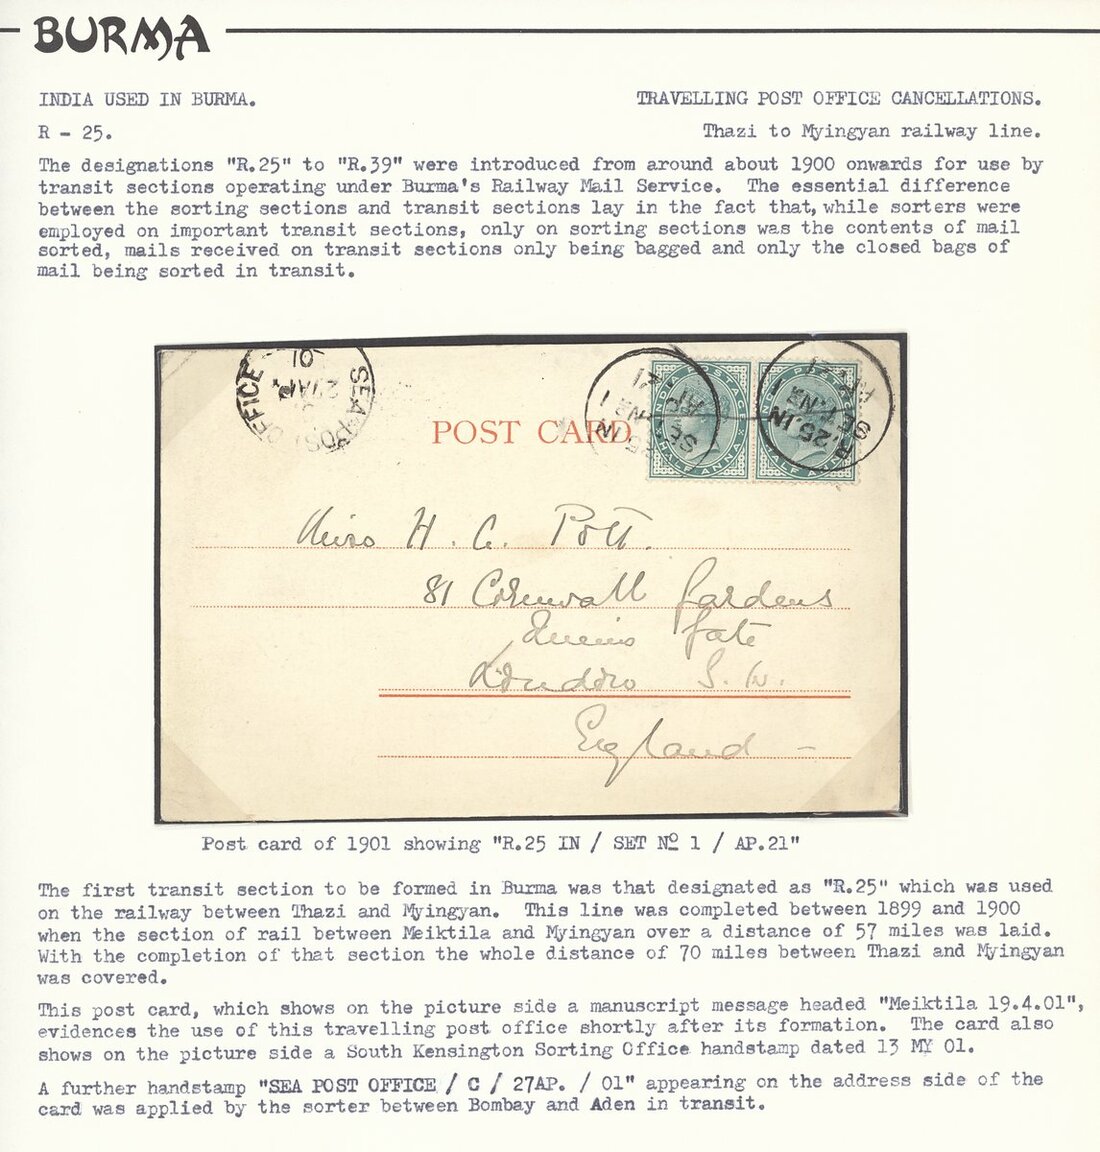 BURMA
INDIA USED IN BURMA.
TRAVELLING POST OFFICE CANCELLATIONS.
R - 25.
Thazi to Myingyan railway line.
The designations "R.25" to "R.39" were introduced from around about 1900 onwards for use by
transit sections operating under Burma's Railway Mail Service. The essential difference
between the sorting sections and transit sections lay in the fact that, while sorters were
employed on important transit sections, only on sorting sections was the contents of mail
sorted, mails received on transit sections only being bagged and only the closed bags of
mail being sorted in transit.
SEA POST OFFICE
27 AP
01
R.25.IN
SET Nº 1
AP.21
R.25.IN
SET Nº 1
AP.21
INDIA POSTAGE
HALF ANNA
INDIA POSTAGE
HALF ANNA
POST CARD
Miss H. C. Pott.
81 Cornwall Gardens
Queens Gate
London S.W.
England -
Post card of 1901 showing "R.25 IN / SET Nº 1 / AP.21"
The first transit section to be formed in Burma was that designated as "R.25" which was used
on the railway between Thazi and Myingyan. This line was completed between 1899 and 1900
when the section of rail between Meiktila and Myingyan over a distance of 57 miles was laid.
With the completion of that section the whole distance of 70 miles between Thazi and Myingyan
was covered.
This post card, which shows on the picture side a manuscript message headed "Meiktila 19.4.01",
evidences the use of this travelling post office shortly after its formation. The card also
shows on the picture side a South Kensington Sorting Office handstamp dated 13 MY 01.
A further handstamp "SEA POST OFFICE / C / 27AP. / 01" appearing on the address side of the
card was applied by the sorter between Bombay and Aden in transit.